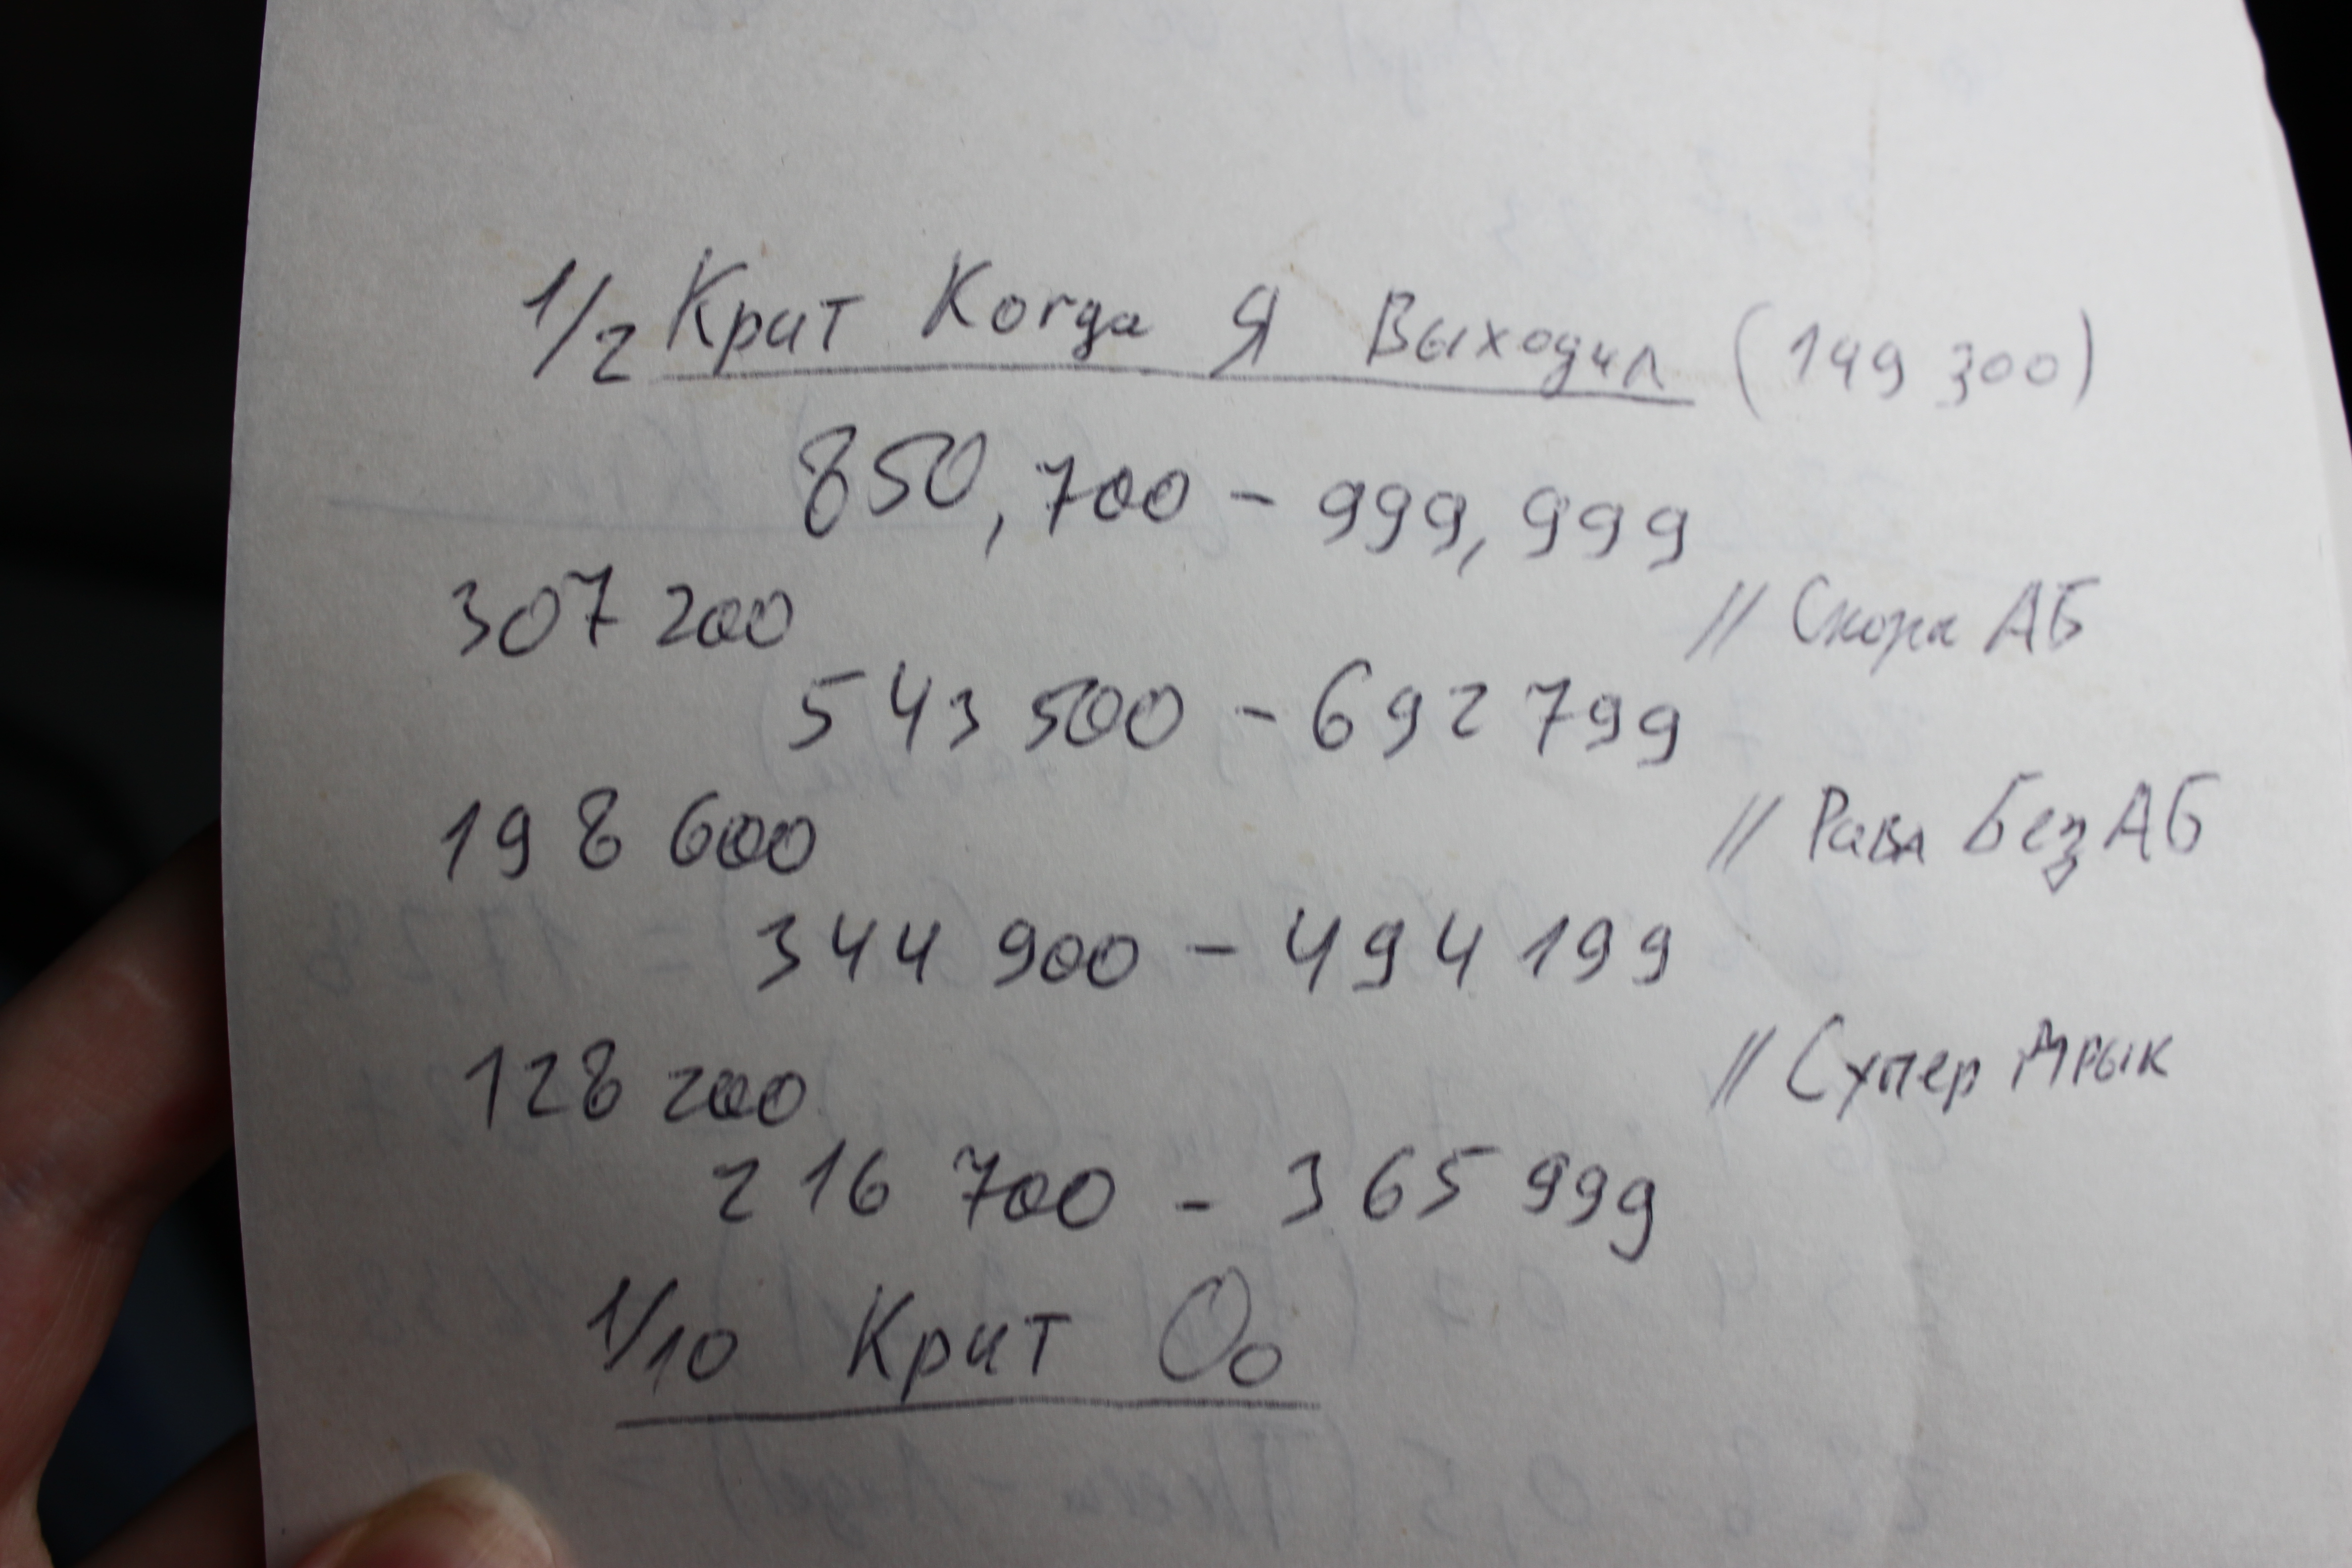 1/2 Крит Когда Я Выходил (149 300)
850,700 - 999,999
307 200 // Скора АБ
543 500 - 692 799
198 600 // Рава Без АБ
344 900 - 494 199
128 200 // Супер
216 700 - 365 999
1/10 Крит Оо